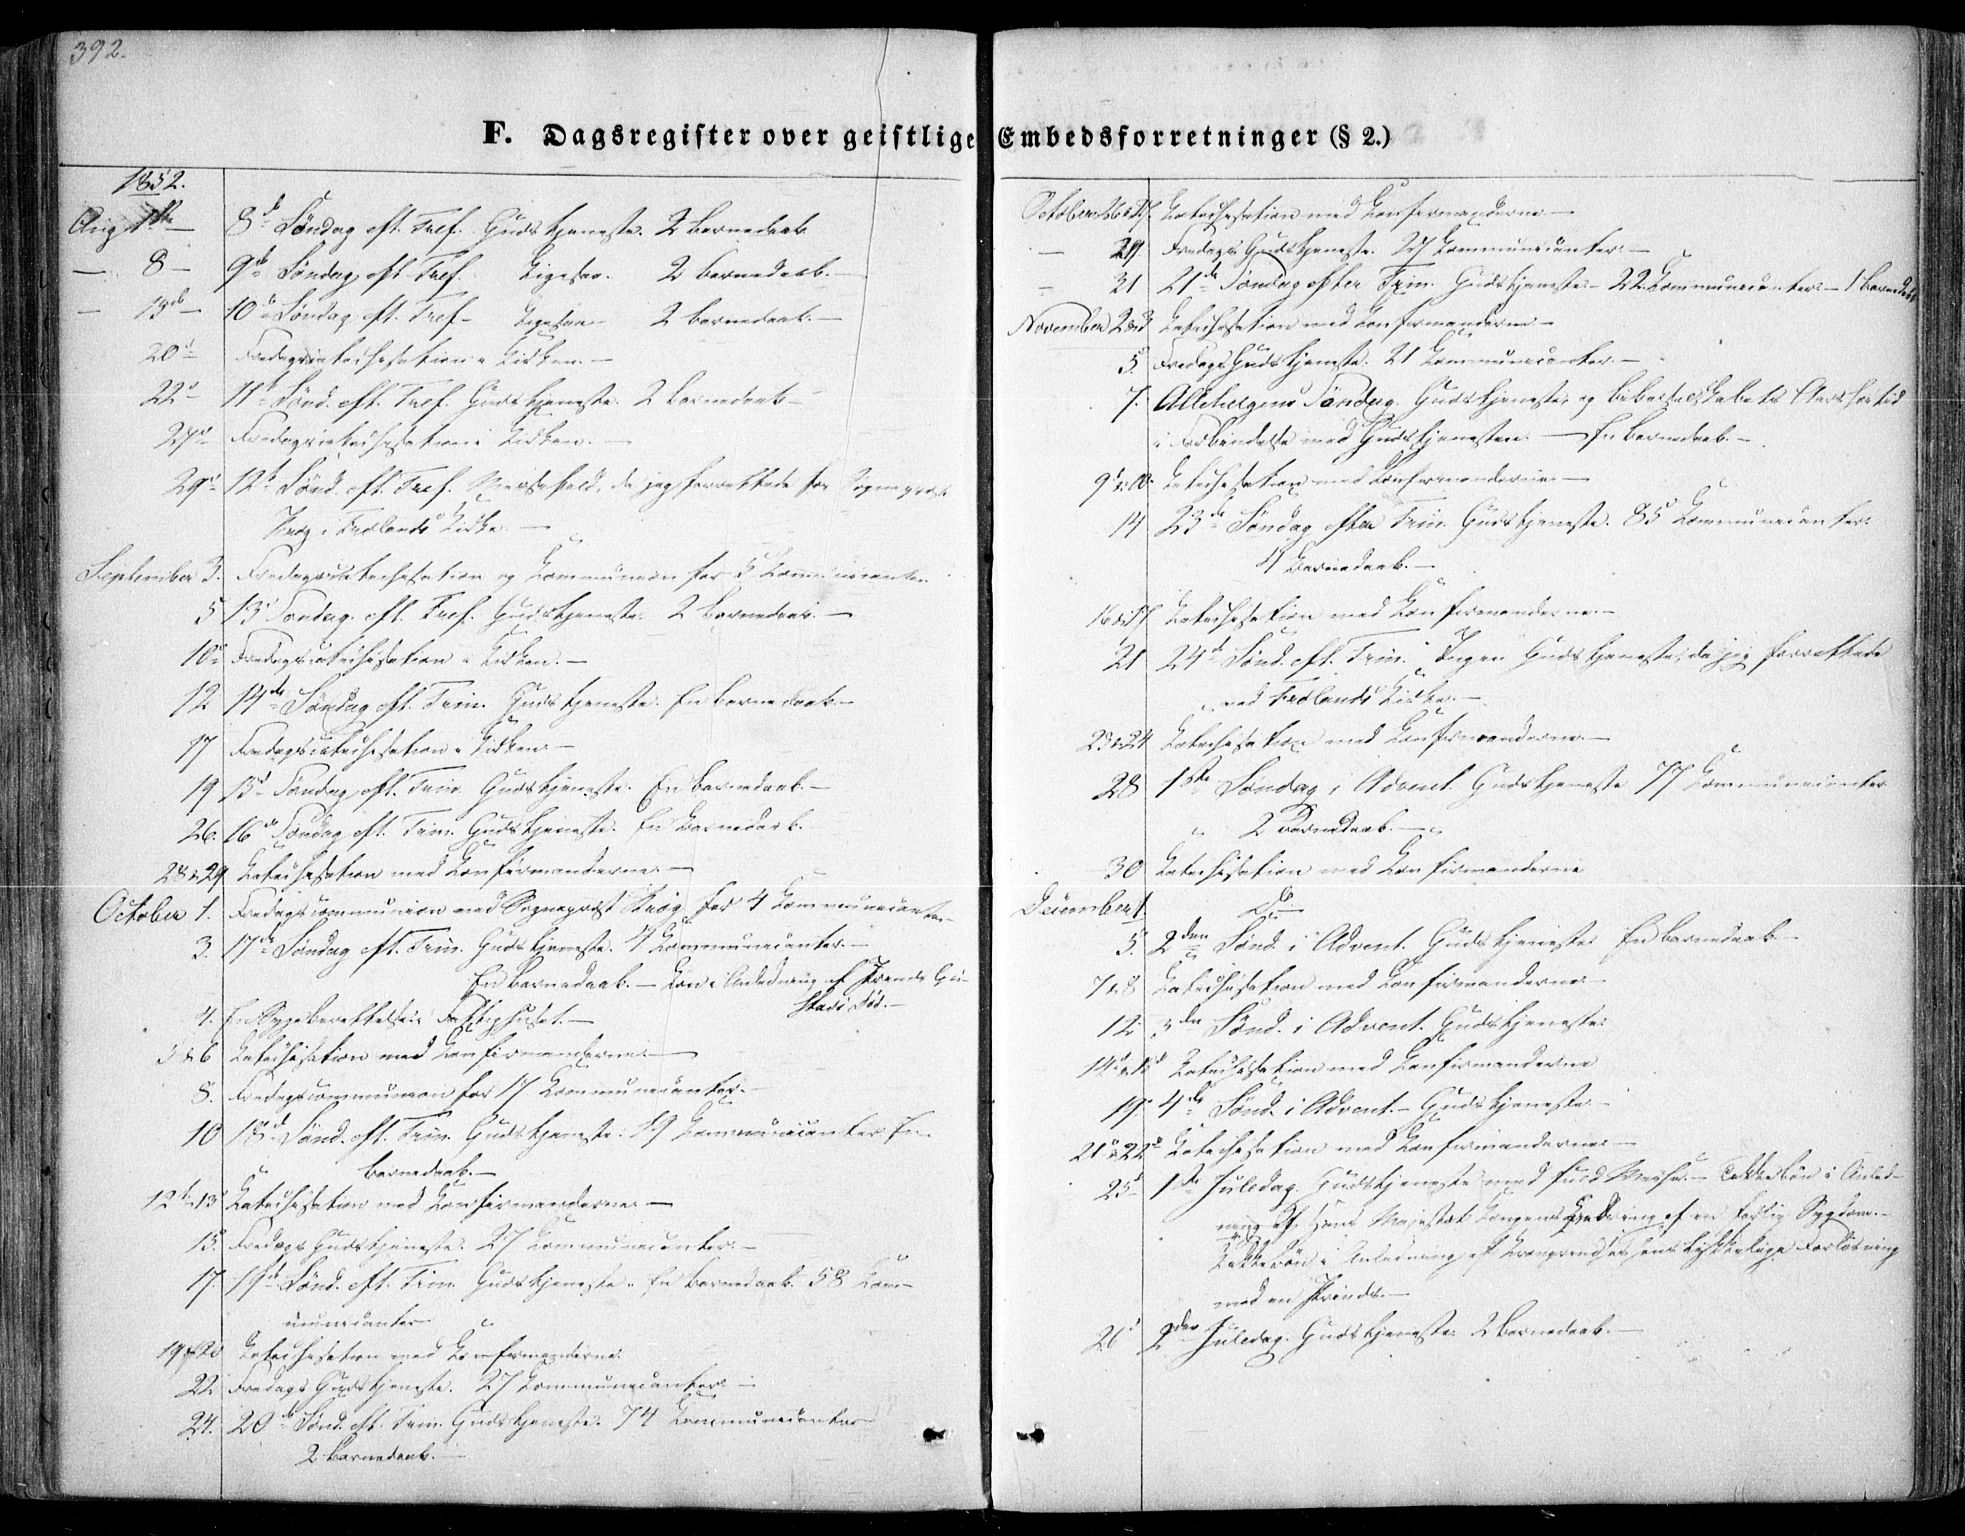 392.
F. Dagsregister over geistlige Embedsforretninger (§ 2.)
1852.
Aug 1ste — 8d Søndag eft. Tref. Gudstjeneste. 2 Barnedaab.
— 8 — 9d Søndag eft. Tref. Ligesaa. 2 Barnedaab. —
— 15d — 10d Søndag eft. Tref. Ligesaa 2 Barnedaab. —
20d Fredagscatechisation i Kirken. —
22d 11d Sønd. eft. Tref. Gudstjeneste. 2 Barnedaab —
27d Fredagscatechisation i Kirken. —
29d 12d Sønd. eft. Tref. Messefald, da jeg forrettede for Sognepræst
Krog i Froland's Kirke. —
September 3. Fredagscatechisation og Communion for 5 Communicanter.
5 13d Søndag eft. Tref. Gudstjeneste. 2 Barnedaab. —
10d Fredagscatechisation i Kirken. —
12 14de Søndag eft. Trin. Gudstjeneste. En Barnedaab. —
17 Fredagscatechisation i Kirken. —
19 15d Søndag eft. Trin. Gudstjeneste. En Barnedaab. —
26. 16de Søndag eft. Trin. Gudstjeneste. En Barnedaab.
28 & 29 Catechisation med Confirmanderne. —
October 1. Fredagscommunion med Sognepræst Krog for 4 Communicanter.
3. 17de Søndag eft. Trin. Gudstjeneste. 4 Communicanter. —
En Barnedaab. — Bøn i Anledning af Prinds Gu-
stavs Død. —
4. En Sygeberettelse i Fattighuset. —
5 & 6 Catechisation med Confirmanderne. —
8. Fredagscommunion for 17 Communicanter. —
10 18d Sønd. eft. Trin. Gudstjeneste. 19 Communicanter. En
Barnedaab. —
12t & 13d Catechisation med Confirmanderne. —
15. Fredags Gudstjeneste. 27 Communicanter. —
17. 19d Sønd. eft. Trin. Gudstjeneste. En Barnedaab. 58 Com-
municanter
19 & 20 Catechisation med Confirmanderne.
22 Fredags Gudstjeneste. 27 Communicanter. —
24. 20d Sønd. eft. Trin. Gudstjeneste. 74 Communicanter
2 Barnedaab. —
October 26 & 27. Catechisation med Confirmanderne. —
— 29. Fredags Gudstjeneste. 27 Communicanter. —
— 31 21de Søndag efter Trin. Gudstjeneste — 22 Communicanter. — 1 Barnedaab
November 2 & 3 Catechisation med Confirmanderne —
5. Fredags Gudstjeneste. 21 Communicanter. —
7. Allehelgens Søndag. Gudstjeneste, og Bibelselskabets Aarshøitid
i Forbindelse med Gudstjenesten. — En Barnedaab. —
9d & 10d Catechisation med Confirmanderne —
14 23de Søndag efter Trin. Gudstjeneste. 85 Communicanter.
4 Barnedaab. —
16 & 17 Catechisation med Confirmanderne. —
21 24d Sønd. eft. Trin. Ingen Gudstjeneste, da jeg forrettede
ved Froland's Kirke. —
23 & 24 Catechisation med Confirmanderne. —
28 1ste Søndag i Advent. Gudstjeneste 77 Communicanter
2 Barnedaab. —
30 Catechisation med Confirmanderne
December 1. Do
5. 2den Sønd. i Advent. Gudstjeneste. En Barnedaab. —
7 & 8 Catechisation med Confirmanderne —
12. 3de Sønd. i Advent. Gudstjeneste.
14d & 15d Catechisation med Confirmanderne
19d 4de Sønd. i Advent. — Gudstjeneste. —
21d & 22d Catechisation med Confirmanderne —
25d 1ste Juledag. Gudstjeneste med fuld Messe. — Takkebøn i Anled-
ning af Hans Majestæt Kongens Helbredelse af en farlig Sygdom. —
Takkebøn i Anledning af Kronprindsessens lykkelige Forløsning
med en Prinds. —
26d 2den Juledag. Gudstjeneste. 2 Barnedaab. —